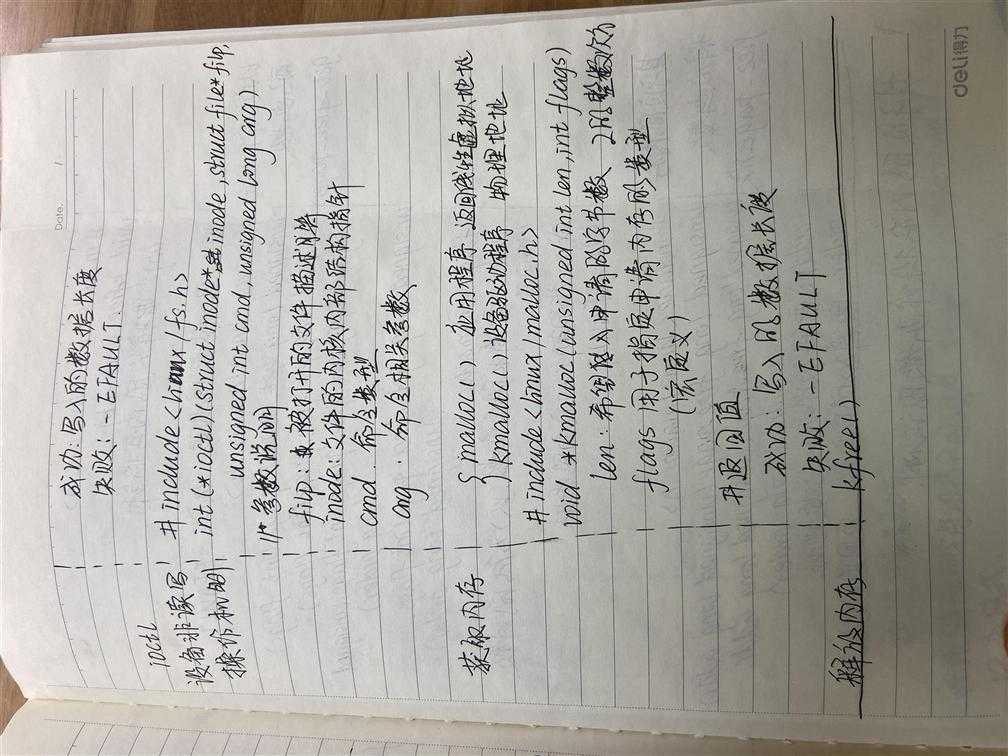 Date. /
成功：写入的数据长度
失败：-EFAULT.
ioctl
设备非读写操作机的
#include<linux/fs.h>
int(*ioctl)(struct inode* inode, struct file*filp,
unsigned int cmd, unsigned long arg)
//*参数说明
filp：被打开的文件描述符
inode：文件的内核内部结构指针
cmd. 命令类型
arg. 命令相关参数
获取内存
{ malloc() 应用程序 返回线性虚拟地址
kmalloc() 设备驱动程序 物理地址
#include<linux/malloc.h>
void *kmalloc(unsigned int len, int flags)
len：希望 申请的字节数 2的整数次幂
flags 用于指定申请内存的类型
(宏定义)
#返回值
成功：写入的数据长度
失败：-EFAULT
释放内存 kfree()
deli得力